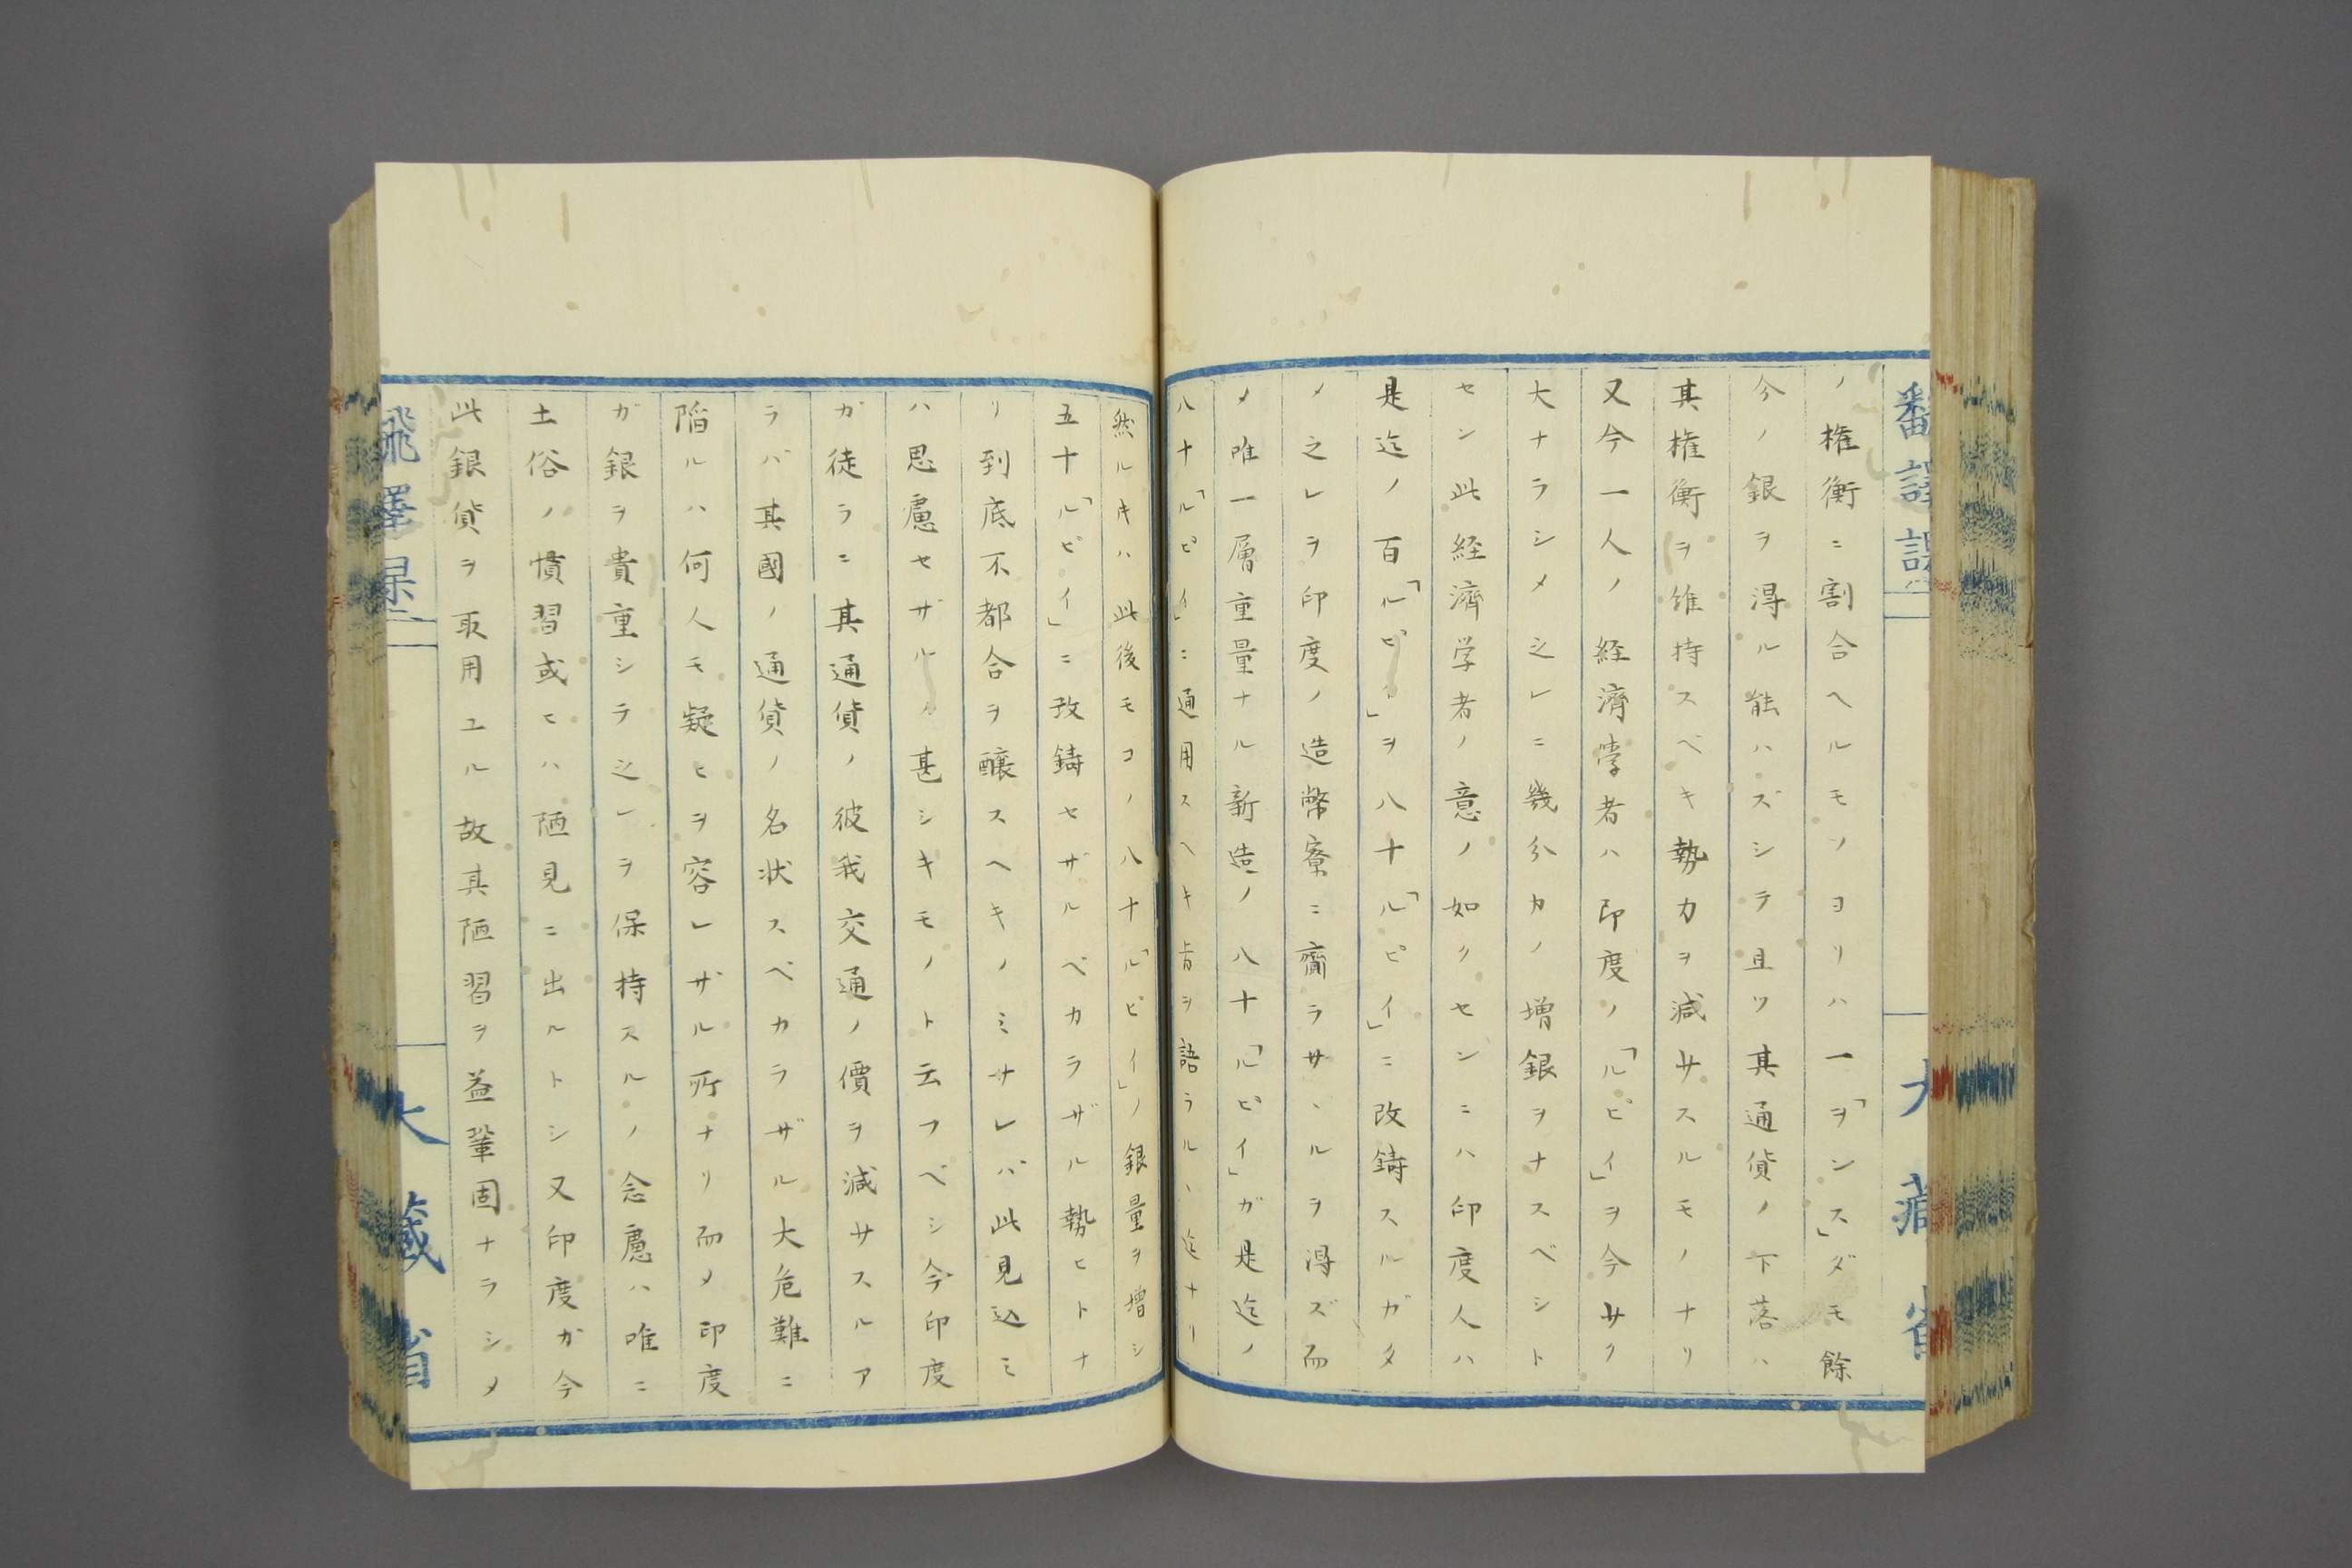 ノ権衡ニ割合ヘルモノヨリハ一「ヲンス」ダモ餘
分ノ銀ヲ得ル能ハズシテ且ツ其通貨ノ下落ハ
其権衡ヲ維持スベキ勢力ヲ減サスルモノナリ
又今一人ノ経濟學者ハ印度ノ「ルピイ」ヲ今サク
大ナラシメ之レニ幾分カノ増銀ヲナスベシト
セン此経濟学者ノ意ノ如クセンニハ印度人ハ
是迄ノ百「ルピイ」ヲ八十「ルピイ」ニ改鋳スルガタ
メ之レヲ印度ノ造幣寮ニ齎ラサヽルヲ得ズ而
メ唯一層重量ナル新造ノ八十「ルピイ」ガ是迄ノ
八十「ルピイ」ニ通用スヘキ旨ヲ語ラルヽ迄ナリ
然ルキハ此後モコノ八十「ルピイ」ノ銀量ヲ増シ
五十「ルピイ」ニ改鋳セザルベカラザル勢ヒトナ
リ到底不都合ヲ醸スヘキノミサレバ此見込ミ
ハ思慮セザルノ甚シキモノト云フベシ今印度
ガ徒ラニ其通貨ノ彼我交通ノ價ヲ減サスルア
ラバ其國ノ通貨ノ名状スベカラザル大危難ニ
陥ルハ何人モ疑ヒヲ容レザル所ナリ而メ印度
ガ銀ヲ貴重シテ之レヲ保持スルノ念慮ハ唯ニ
土俗ノ慣習或ヒハ陋見ニ出ルトシ又印度ガ今
此銀貨ヲ取用ユル故其陋習ヲ益鞏固ナラシメ
大藏省